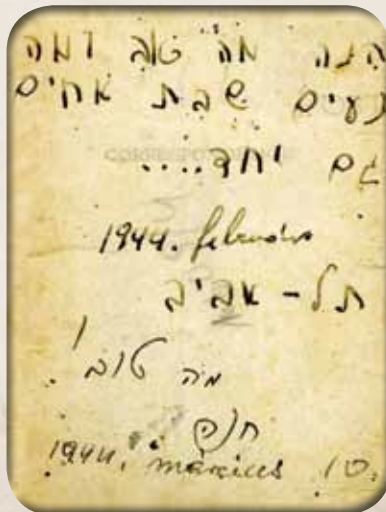 הנה מה טוב ומה
נעים שבת אחים
גם יחד....
1944. február
תל-אביב
מה טוב!
1944. március 10.